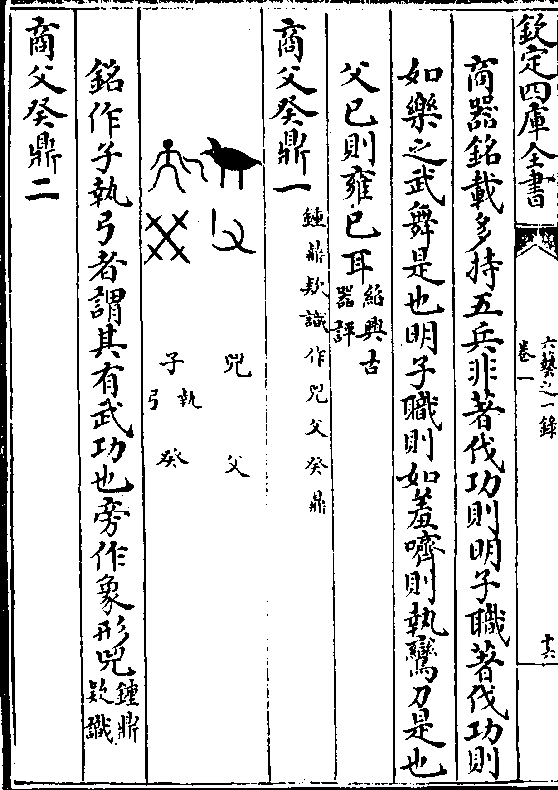 欽定四庫全書
六藝之一錄
卷一
十六
商器銘載多持五兵非著伐功則明子職著伐功則
如樂之武舞是也明子職則如羞嚌則執鸞刀是也
父已則雍已耳紹興古
器評
商父癸鼎一鍾鼎欵識作兕父癸鼎
兕 父
子執弓 癸
銘作子執弓者謂其有武功也旁作象形兕鍾鼎
欵識
商父癸鼎二